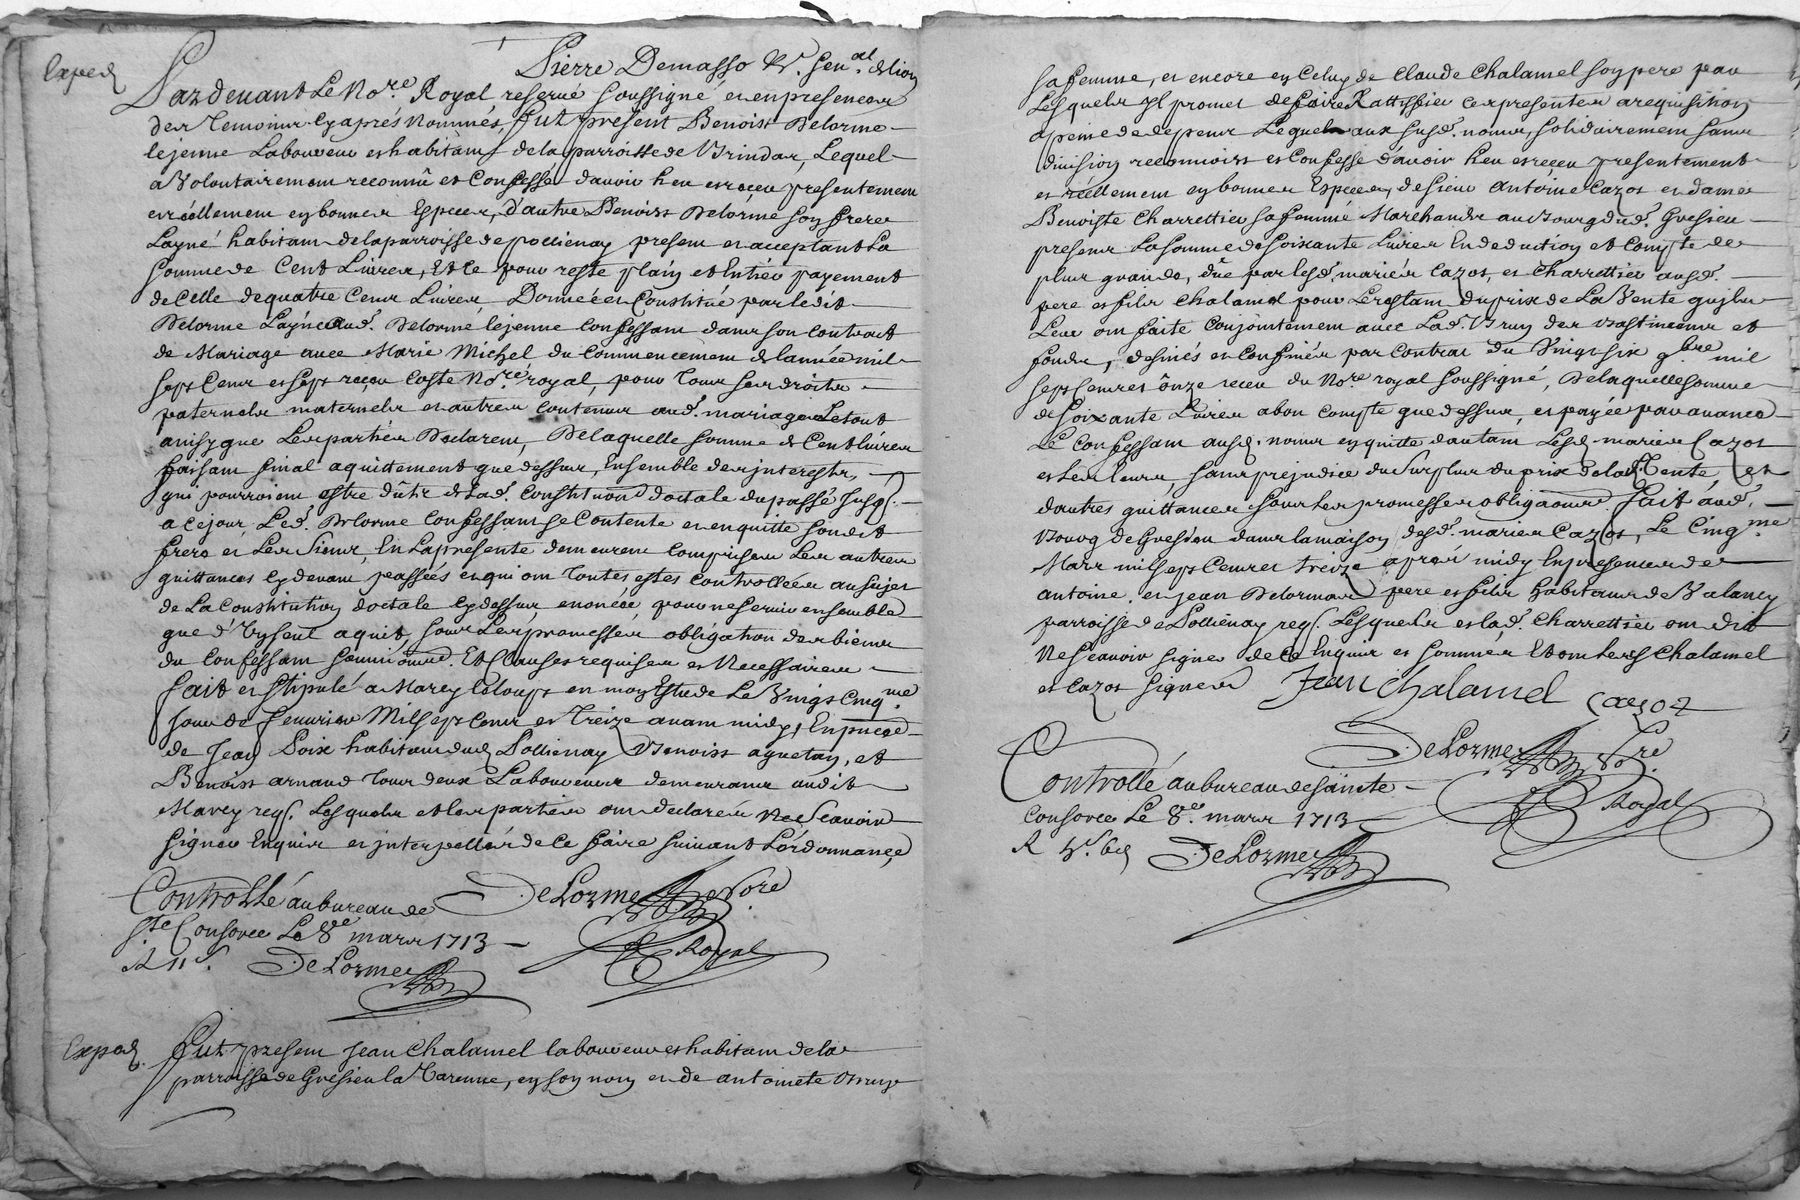 Exped
Pierre Demasso Vr. genal. de Lion
Pardevant Le Nore. Royal reservé soussigné et en presence
des temoins cy apres nommés, fut present Benoist Delorme
lejeune Laboureur et habitant de la parroisse de Brindas, Lequel
a volontairement reconnû et confesse d'avoir heu et receu presentement
et réellement en bonnes Especes, d'autre Benoist Delorme son frere
Layné habitant de la parroisse de pollienay present et acceptant La
somme de Cent Livres, Et ce pour reste plain et Entier payement
de Celle de quatre Cens Livres Donnée et Constitué par le dit
Delorme Layné aud. Delorme lejeune confessant dans son contract
de Mariage avec Marie Michel du commencement de lannée mil
sept Cens et sept receu Coste Nore. royal, pour tous ses droits
paternels maternels et autres contenus aud. mariage Le tout
ainsy que Les parties Declarent, De laquelle somme de Cent livres
faisant final aquittement que dessus, Ensemble des interests,
qui pourroient estre dûs de lad. Constitution doctale du passé jusq.
a ce jour, Led. Delorme confessant se Contente et en quitte son dit
frere et Les siens, En La presente demeurent comprises Les autres
quittances cy devant passées et qui ont toutes estes controllées au sujet
de La Constitution doctale cy dessus enoncée pour ne servir ensemble
que d'un seul aquit, sous Les promesses obligation des biens
du confessant soumissions. Et Clauses requises et Necessaires
fait et stipulé a Marcy Leloup en mon Estude Le vingt cinqme.
jour de fevrier Mil sept cens et Treize avant midy, En presence
de Jean Poix habitant dud. Pollienay Benoist aguetan, et
Benoist arnaud tous deux Laboureurs demeurans audit
Marcy reqs. Lesquels et les parties ont declarés ne scavoir
signer Enquis et interpellés de ce faire suivant L'ordonnance
Controllé au bureau de
Ste Consorce Le 8e mars 1713
R 11 s.
DeLorme
DeLorme Nore.
Royal
Exped.
Fut present Jean Chalamel laboureur et habitant de la
parroisse de Gresieu la varenne, en son nom et de antoinete Bruy
sa femme, et encore en Celuy de Claude Chalamel son pere pour
Lesquels Il promet de faire Rattiffier ces presentes a requisition
a peine de depens Lequel aux susd. noms, solidairement sans
division reconnoist et Confesse d'avoir heu et receu presentement
et réellement en bonnes Especes, de sieur Antoine Cazot et dame
Benoiste Charrettier sa femme Marchands au Bourg dud. Gresieu
presens La somme de soixante Livres En deduction et Compte de
plus grande, dûe par lesd. mariés Cazot et Charrettier ausd.
pere et fils Chalamel pour Le restant du prix de La Vente qu'ils
Leur ont faite Conjointement avec Lad. Bruy des Bastimens et
fonds, desinés et Confinés par contrat du Vingt six 9bre mil
sept cens et onze receu du Nore royal soussigné, De laquelle somme
de soixante Livres a bon Compte que dessus, et payée par avance
Le Confessant ausd. noms en quitte d'autant Lesd. mariés Cazot
et les leurs, sans prejudice du surplus du prix de lad. Vente, et
d'autres quittances sous les promesses obligations. fait aud.
Bourg de Gresieu dans la maison desd. mariés Cazot, Le Cinqme
Mars mil sept Cens et treize après midy En presence de
antoine et jean Delorme pere et fils habitans de Valancy
parroisse de Pollienay reqs. Lesquels et lad. Charrettier ont dit
Ne scavoir signer de ce Enquis et sommés Et ont lesd. Chalamel
et Cazot signés
Jean Chalamel Cazot
DeLorme Nore.
Royal
Controllé au bureau de sainte
Consorce Le 8e. mars 1713
R 5 s. 6d
DeLorme